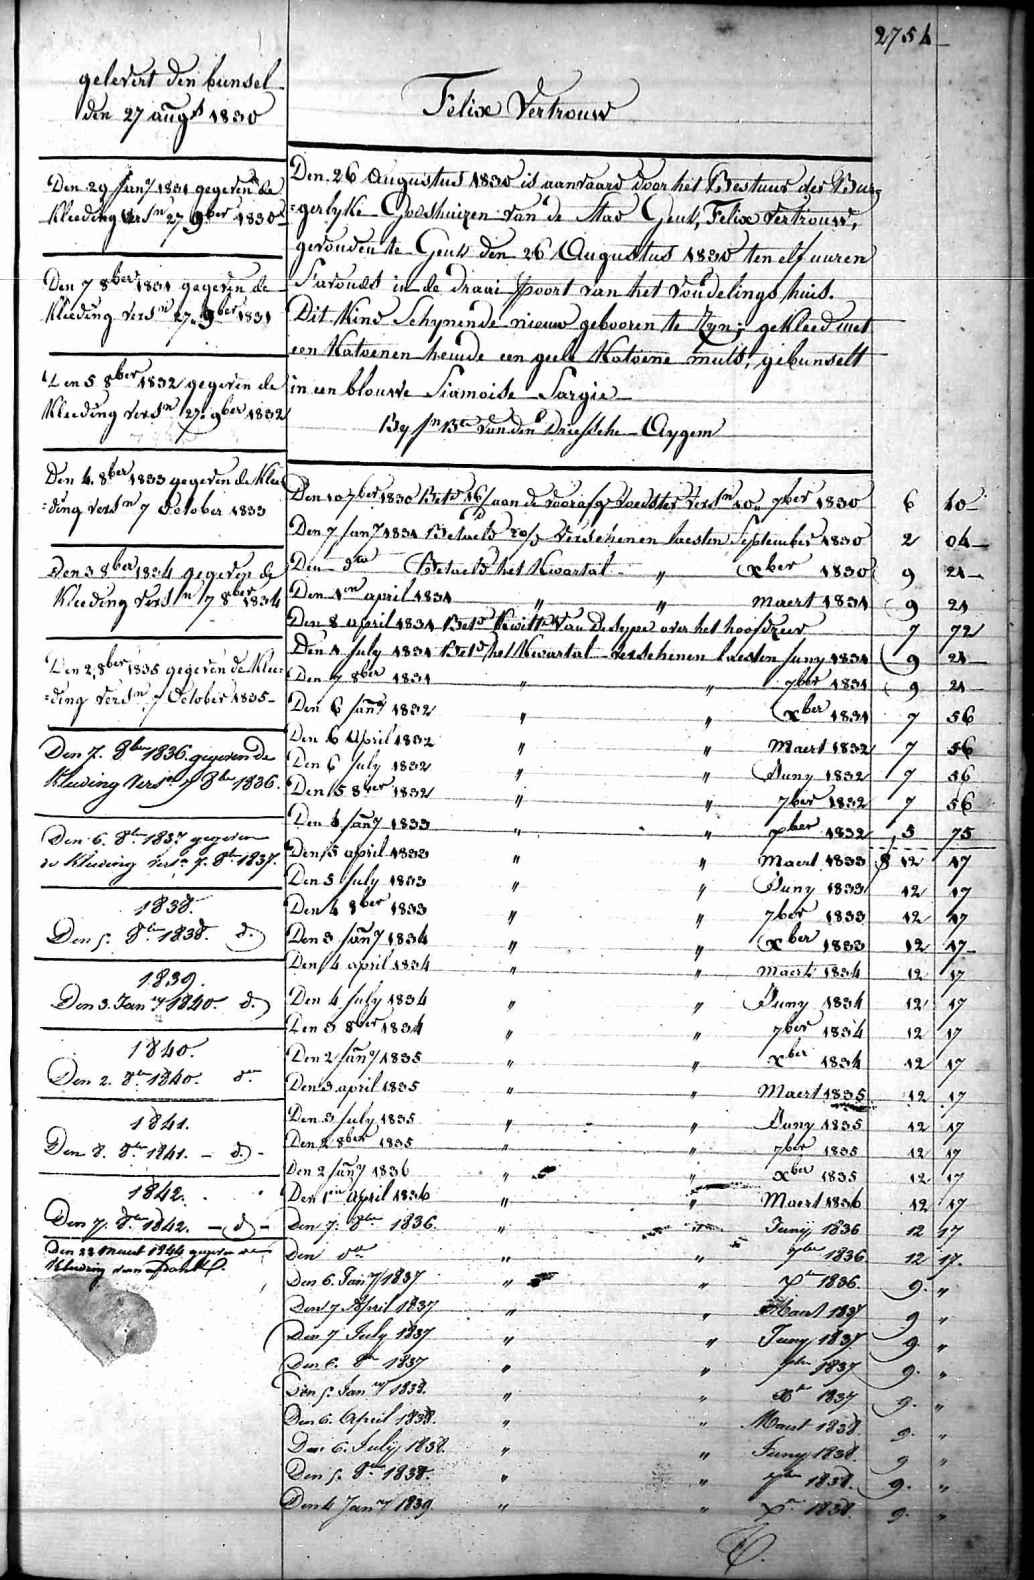 2754
gelevert den bunsel
den 27 augst 1830
Felix Vertrouw
Den 29 Jany 1831 gegeven de
kleeding versn 27 9ber 1830
Den 7 8ber 1831 gegeven de
kleeding versn 27 9ber 1831
Den 5 8ber 1832 gegeven de
kleeding versn 27 9ber 1832
Den 4 8ber 1833 gegeven de klee
=ding versn 7 October 1833
Den 3 8ber 1834 gegeven de
kleeding versn 7 8ber 1834
Den 2 8ber 1835 gegeven de klee
=ding versn 7 October 1835
Den 7. 8ber 1836 gegeven de
kleeding versn 7 8bre 1836.
Den 6. 8bre 1837 gegeven
de kleeding versn 7. 8bre 1837.
1838.
Den 5. 8bre 1838. d.
1839.
Den 3. Jany 1840. d.
1840.
Den 2. 8bre 1840. do
1841.
Den 8. 8bre 1841. - d. -
1842.
Den 7. 8bre 1842. - d -
Den 22 Maart 1844 gegeven de
kleeding van
Den 26 Augustus 1830 is aanvaard door het Bestuur der Bur=
=gerlyke Godshuizen van de Stad Gent, Felix Vertrouw,
gevonden te Gent den 26 Augustus 1830 ten elf uuren
S'avonds in de draai poort van het vondelings huis.
Dit kind Schynende nieuw gebooren te Zyn; gekleed met
een Katoenen hemde een geele Katoene muts, gebunselt
in een blouwe Siamoise Sargie
By Jn Bte van den Driessche Aygem
Den 10 7ber 1830 Betd 16/ aan de voorafge voedster versn 10 7ber 1830 6 10
Den 7 Jany 1831 Betaeld 20/ Verschenen laesten September 1830 2 04
Den do Betaeld het Kwartal " Xber 1830 9 21
Den 1en april 1831 " " Maert 1831 9 21
Den 8 april 1831 Betd Kwitte van de over het hoofdzeer 7 72
Den 1 July 1831 Betd het Kwartal verschenen laesten Juny 1831 9 21
Den 7 8ber 1831 " " 7ber 1831 9 21
Den 6 Jany 1832 " " Xber 1831 7 56
Den 6 April 1832 " " Maert 1832 7 56
Den 6 July 1832 " " Juny 1832 7 56
Den 5 8ber 1832 " " 7ber 1832 7 56
Den 4 Jany 1833 " " Xber 1832 5 75
Den 5 april 1833 " " Maert 1833 12 17
Den 5 July 1833 " " Juny 1833 12 17
Den 4 8ber 1833 " " 7ber 1833 12 17
Den 3 Jany 1834 " " Xber 1833 12 17
Den 4 april 1834 " " Maert 1834 12 17
Den 4 July 1834 " " Juny 1834 12 17
Den 3 8ber 1834 " " 7ber 1834 12 17
Den 2 Jany 1835 " " Xber 1834 12 17
Den 3 april 1835 " " Maert 1835 12 17
Den 3 July 1835 " " Juny 1835 12 17
Den 2 8ber 1835 " " 7ber 1835 12 17
Den 2 Jany 1836 " " Xber 1835 12 17
Den 1en April 1836 " " Maert 1836 12 17
Den 7. 8bre 1836. " " Junij 1836 12 17
Den do " " 7bre 1836 12 17.
Den 6. Jany 1837 " " Xbre 1836. 9. "
Den 7 April 1837 " " Maert 1837 9 "
Den 7 July 1837 " " Juny 1837 9. "
Den 6. 8bre 1837 " " 7bre 1837 9. "
Den 5. Jany 1838. " " Xbre 1837 9. "
Den 6. April 1838. " " Maert 1838 9. "
Den 6. July 1838. " " Juny 1838. 9 "
Den 5. 8bre 1838. " " 7bre 1838. 9. "
Den 4 Jany 1839. " " Xbre 1838. 9. "